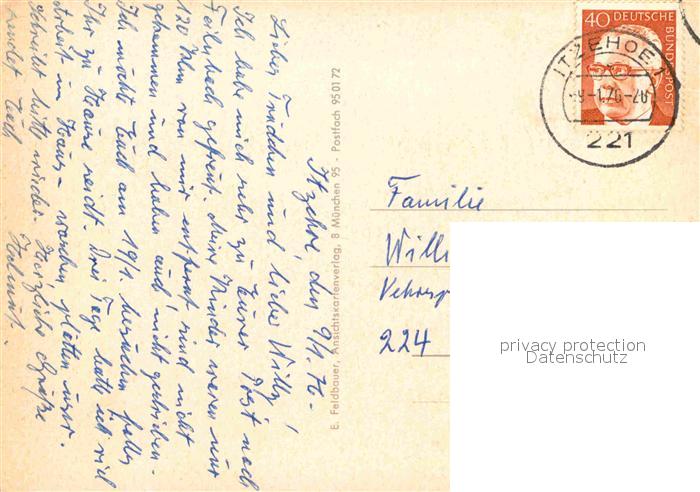 Itzehoe, den 9/1. 76.
Liebes Trudchen und lieber Willy!
Ich habe mich sehr zu Eurer Post nach
gefreut. Meine Kinder waren nur
120 Klm von mir entfernt sind nicht
gekommen und haben auch nicht geschrieben.
Ich möchte Euch am 19/1. besuchen falls
Ihr zu Hause seidt. Drei Tage hatte ich viel
Arbeit im Haus - waschen plätten usw.
Schreibt bitte wieder. Herzliche Grüße
sendet Euch
E. Feldbauer, Ansichtskartenverlag, 8 München 95 - Postfach 950172
40 DEUTSCHE
BUNDESPOST
ITZEHOE 1
221
Familie
Willi
224
privacy protection
Datenschutz